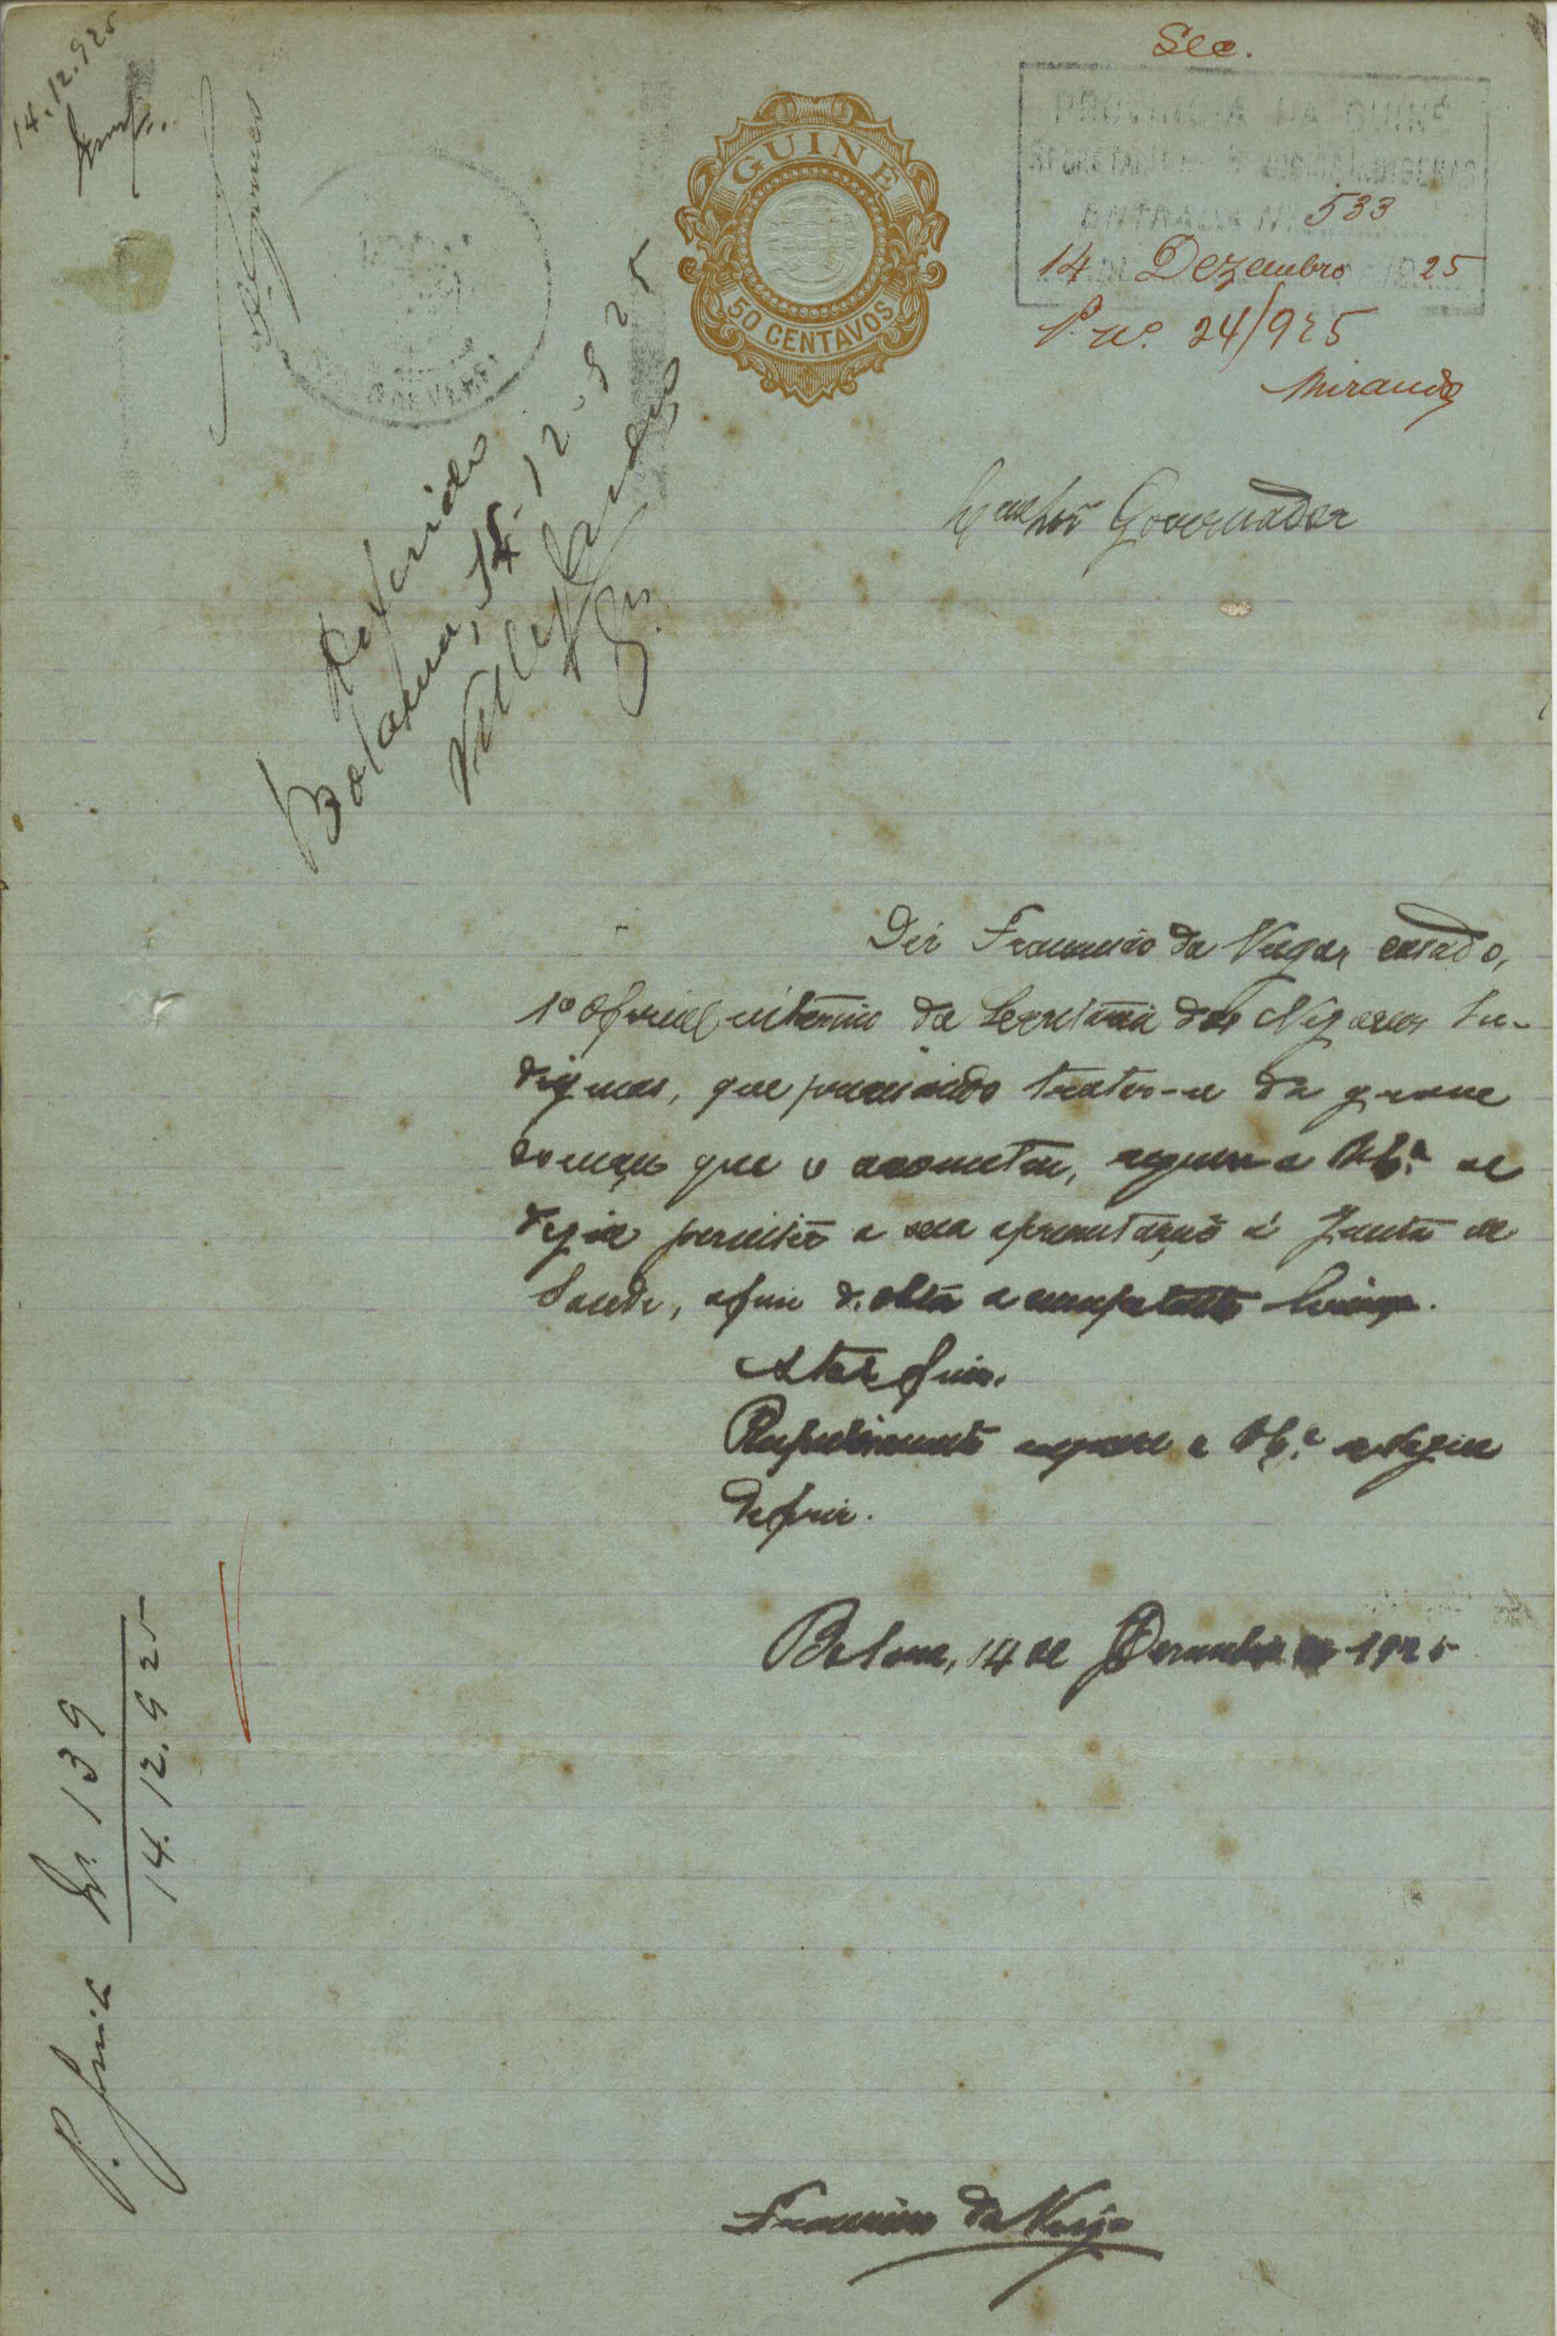 14.12.925
Gomes
Sec.
GUINÉ
50 CENTAVOS
PROVINCIA DA GUINÉ
ENTRADA N.º 533
14 Dezembro 1925
P. nº. 24/925
Miranda
Deferido
Bolama, 14-12-925
Senhor Governador
Diz Francisco da Veiga, casado,
1º oficial interino da Secretaria dos Negocios In-
digenas, que precisando tratar-se da grave
doença que o acometeu, requer a V. Ex.ª se
digne permitir a sua apresentação á Junta de
Saude, afim de obter a competente licença.
N'estes termos
Respeitosamente a V. Ex.ª se digne
deferir.
Bolama, 14 de Dezembro de 1925
Nº 139
14.12.925
Francisco da Veiga